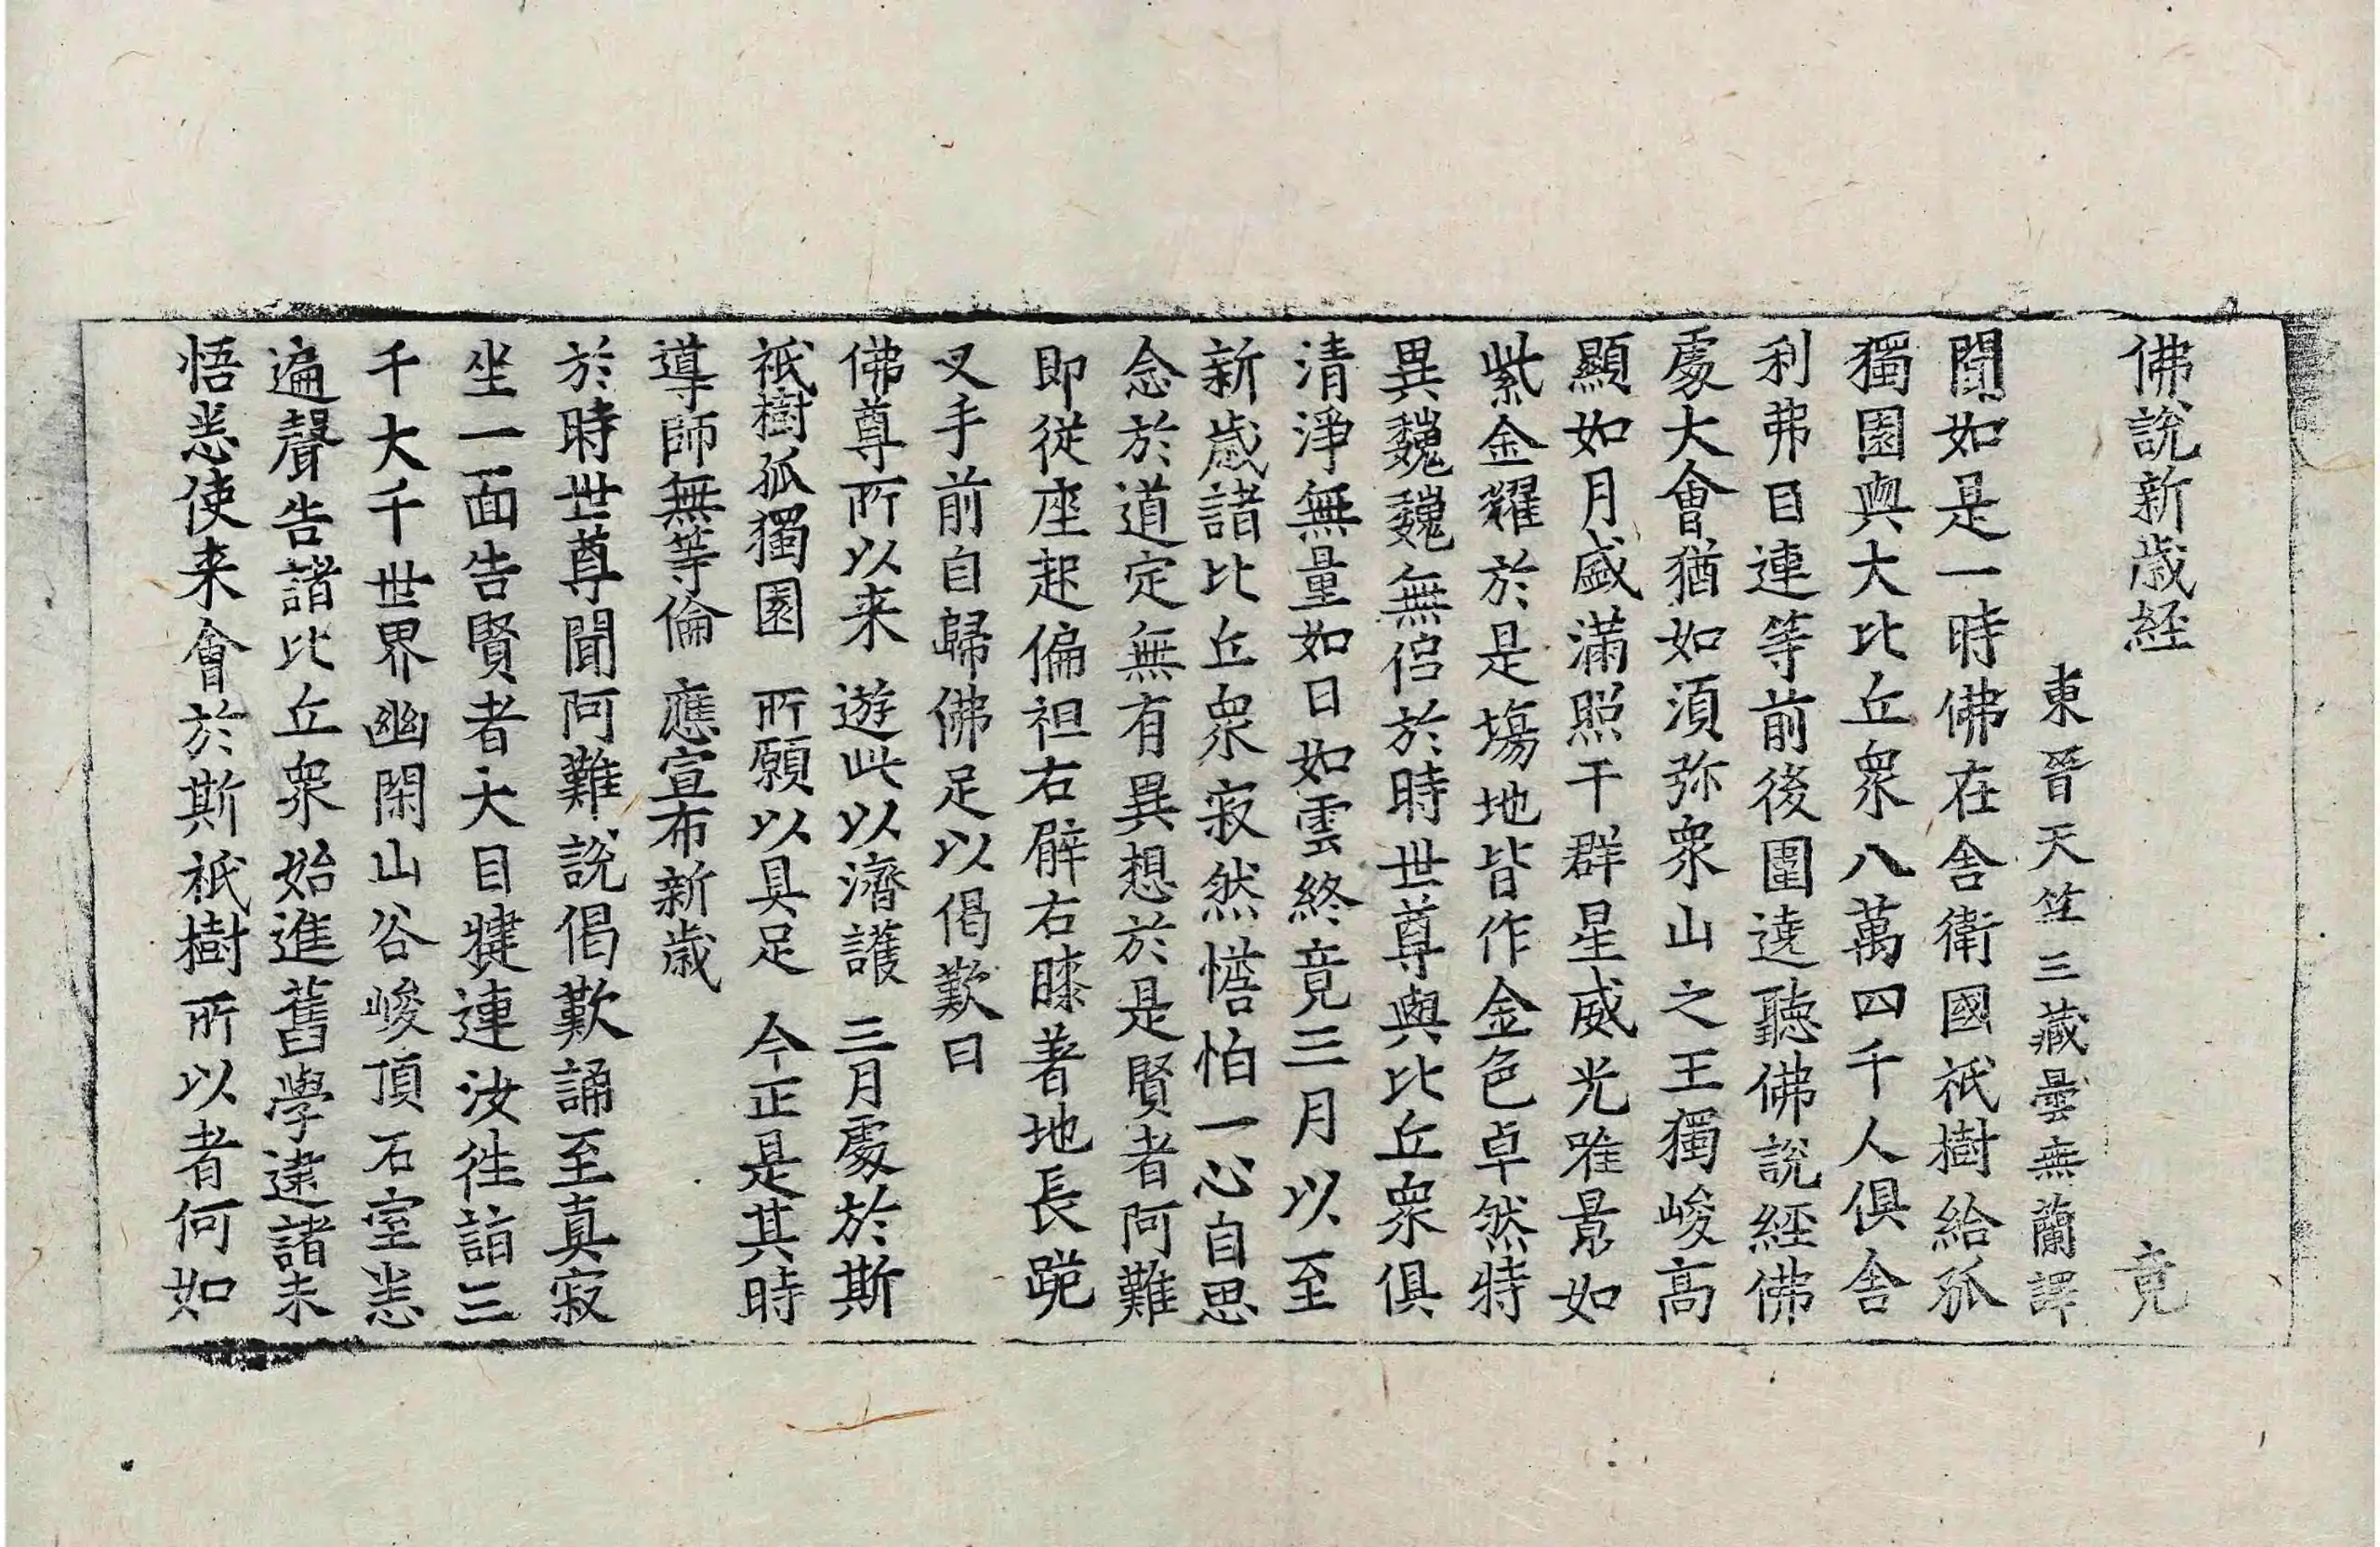 佛說新歲経 竟
東晉天竺三藏曇無蘭譯
聞如是一時佛在舎衛國祇樹給孤
獨園與大比丘衆八萬四千人俱舎
利弗目連等前後圍遶聽佛說經佛
處大會猶如須弥衆山之王獨峻高
顯如月盛滿照于群星威光唯景如
紫金耀於是塲地皆作金色卓然特
異巍巍無侣於時世尊與比丘衆俱
清淨無量如日如雲終竟三月以至
新歲諸比丘衆寂然憺怕一心自思
念於道定無有異想於是賢者阿難
即從座起偏袒右臂右膝著地長跪
叉手前自歸佛足以偈歎曰
佛尊所以来 遊此以濟護 三月處於斯
祇樹孤獨園 所願以具足 今正是其時
導師無等倫 應宣布新歲
於時世尊聞阿難說偈歎誦至真寂
坐一面告賢者大目犍連汝往詣三
千大千世界幽閑山谷峻頂石室悉
遍聲告諸比丘衆始進舊學逮諸未
悟悉使来會於斯祇樹所以者何如